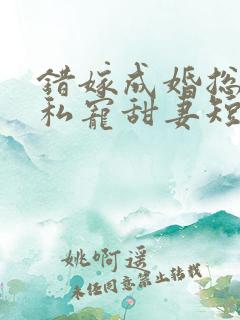 错嫁成婚总
私宠甜妻短
姚啊遥
未经同意禁止转载